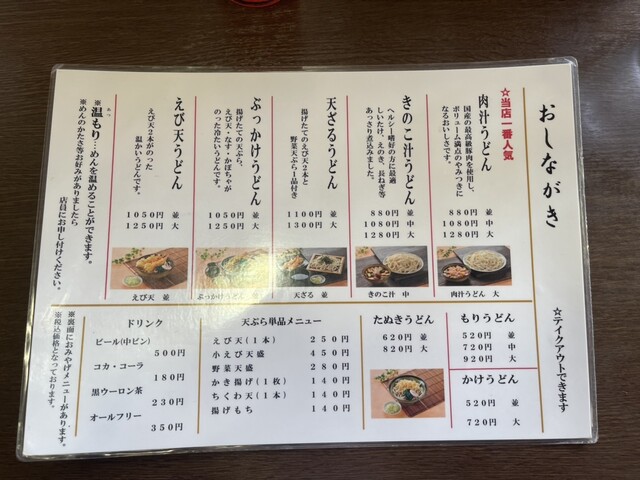 おしながき
☆テイクアウトできます
☆当店一番人気
肉汁うどん
国産の最高級豚肉を使用し、
ボリューム満点のやみつきに
なるおいしさです。
880円 並
1080円 中
1280円 大
肉汁うどん 大
きのこ汁うどん
ヘルシー嗜好の方に最適
しいたけ、えのき、長ねぎ等
あっさり煮込みました。
880円 並
1080円 中
1280円 大
きのこ汁 中
天ざるうどん
揚げたてのえび天2本と
野菜天ぷら1品付き
1100円 並
1300円 大
天ざる 並
ぶっかけうどん
揚げたての天ぷら、
えび天・なす・かぼちゃが
のった冷たいうどんです。
1050円 並
1250円 大
ぶっかけうどん 並
えび天うどん
えび天2本がのった
温かいうどんです。
1050円 並
1250円 大
えび天 並
※温もり…めんを温めることができます。
あつ
※めんのかたさ等お好みがありましたら
店員にお申し付けください。
もりうどん
520円 並
720円 中
920円 大
かけうどん
520円 並
720円 大
たぬきうどん
620円 並
820円 大
天ぷら単品メニュー
えび天(1本) 250円
小えび天盛 450円
野菜天盛 280円
かき揚げ(1枚) 140円
ちくわ天(1本) 140円
揚げもち 140円
ドリンク
ビール(中ビン)
500円
コカ・コーラ
180円
黒ウーロン茶
230円
オールフリー
350円
※裏面におみやげメニューがあります。
※税込価格となっております。